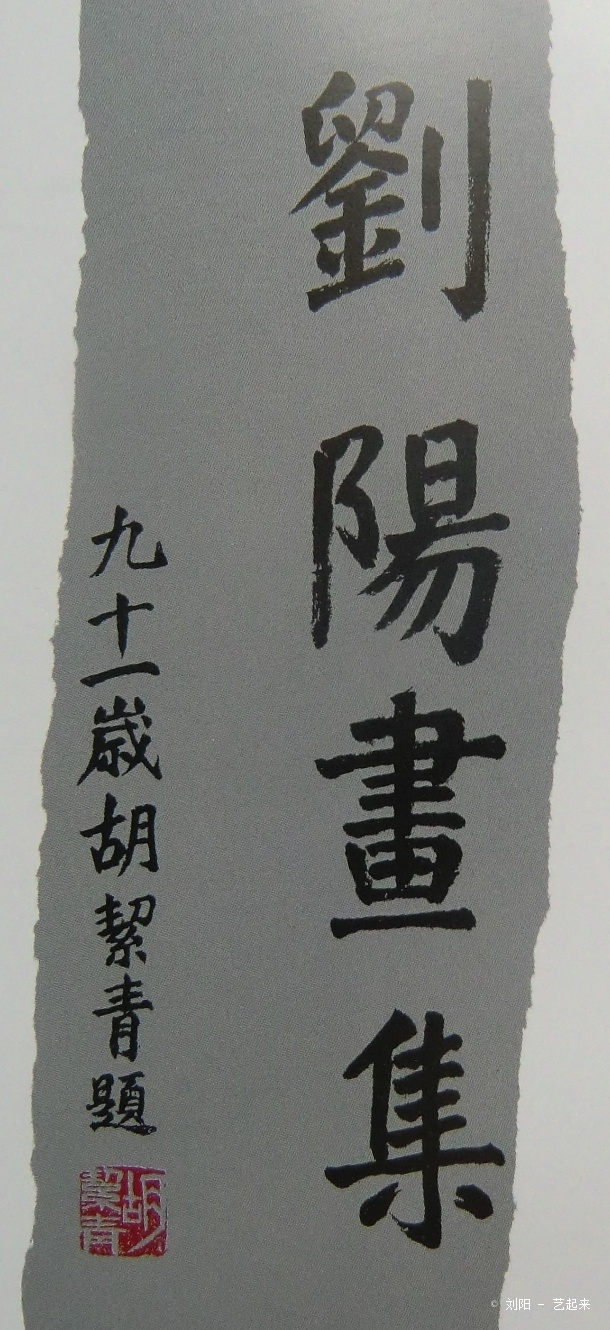 劉陽畫集
九十一歲胡絜青題
胡絜青
© 刘阳 - 艺起来